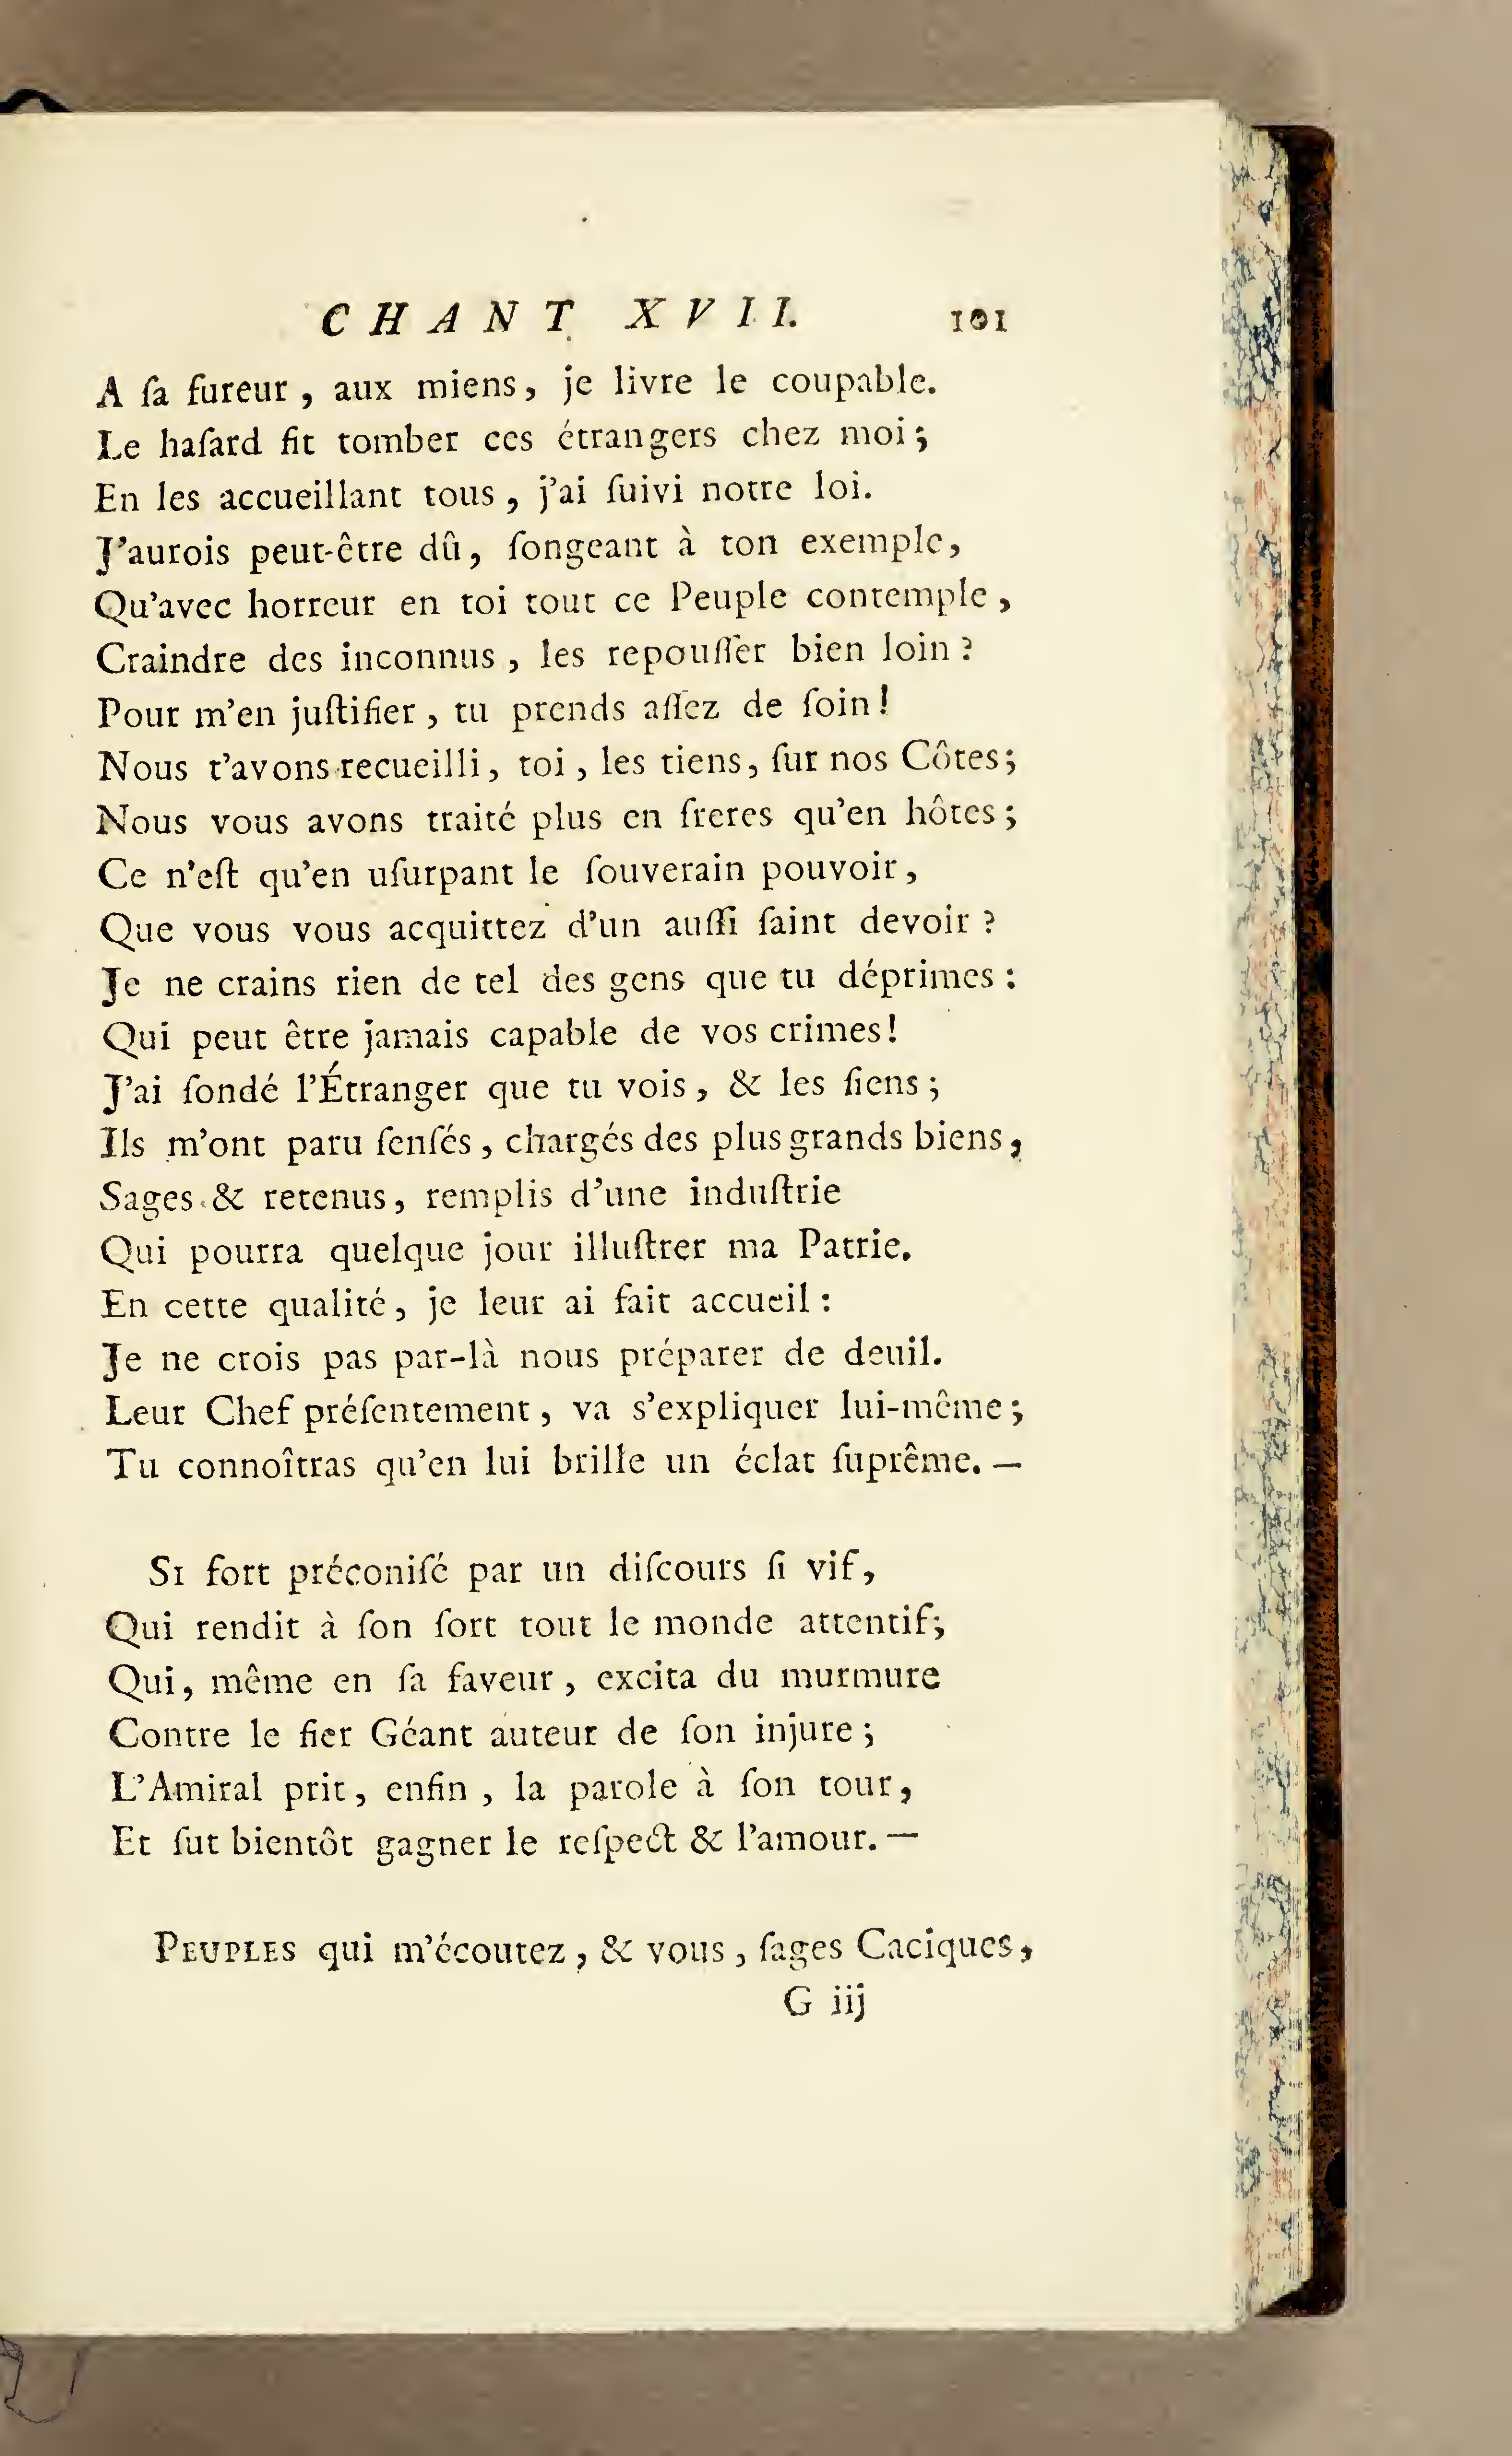 CHANT XVII. 101
A ſa fureur, aux miens, je livre le coupable.
Le haſard fit tomber ces étrangers chez moi;
En les accueillant tous, j'ai ſuivi notre loi.
J'aurois peut-être dû, ſongeant à ton exemple,
Qu'avec horreur en toi tout ce Peuple contemple,
Craindre des inconnus, les repouſſer bien loin?
Pour m'en juſtifier, tu prends aſſez de ſoin!
Nous t'avons recueilli, toi, les tiens, ſur nos Côtes;
Nous vous avons traité plus en freres qu'en hôtes;
Ce n'eſt qu'en uſurpant le ſouverain pouvoir,
Que vous vous acquittez d'un auſſi ſaint devoir?
Je ne crains rien de tel des gens que tu déprimes:
Qui peut être jamais capable de vos crimes!
J'ai ſondé l'Étranger que tu vois, & les ſiens;
Ils m'ont paru ſenſés, chargés des plus grands biens,
Sages & retenus, remplis d'une induſtrie
Qui pourra quelque jour illuſtrer ma Patrie.
En cette qualité, je leur ai fait accueil:
Je ne crois pas par-là nous préparer de deuil.
Leur Chef préſentement, va s'expliquer lui-même;
Tu connoîtras qu'en lui brille un éclat ſuprême. —
SI fort préconiſé par un diſcours ſi vif,
Qui rendit à ſon ſort tout le monde attentif;
Qui, même en ſa faveur, excita du murmure
Contre le fier Géant auteur de ſon injure;
L'Amiral prit, enfin, la parole à ſon tour,
Et ſut bientôt gagner le reſpect & l'amour. —
PEUPLES qui m'écoutez, & vous, ſages Caciques,
G iij